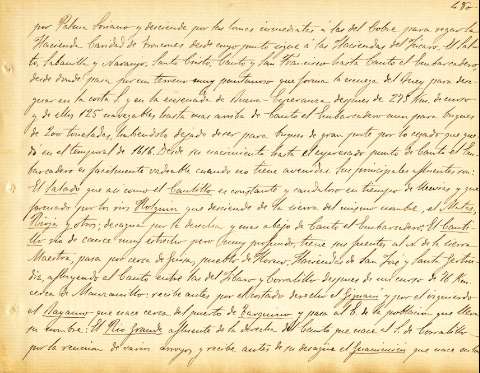 482
por Palma Soriano y desciende por las lomas inmediatas á las del Cobre para regar la
Hacienda Caridad de desde cuyo punto sigue á las Haciendas del Jíbaro, El Sala-
do, Sabanilla y Naranjo, Santa Cruz, Cauto y San Francisco hasta Cauto el Embarcadero
desde donde pasa por un terreno muy pantanoso que forma la cienega del Buey para dar
en la costa S. y en la ensenada de Buena Esperanza, despues de 275 Km. de curso
y de ellos 125 navegables hasta mas arriba de Cauto el Embarcadero aun para buques
de 200 toneladas, habiendolo dejado de ser para buques de gran porte por lo cegado que que-
dó en el temporal de 1616. Desde su nacimiento hasta el expresado punto de Cauto el Em-
barcadero es facilmente vadeable cuando no tiene avenidas. Sus principales afluentes son:
El Salado que asi como el Cautillo es constante y caudaloso en tiempo de lluvias y que
formado por los rios Holguin que desciende de la sierra del mismo nombre, el
Rioja y otros; desagua por la derecha y mas abajo de Cauto el Embarcadero. El Cauti-
llo rio de cauce muy estrecho pero muy profundo, tiene sus fuentes al N. de la Sierra
Maestra, pasa por cerca de Jiguaní, pueblo de Haciendas de San José y Santa
afluyendo al Cauto entre las del Jíbaro y Corralillo despues de un curso de Km.
cerca de recibe antes por el costado derecho el Jiguaní y por el izquierdo
el Bayamo que nace cerca del puerto de y pasa al de la poblacion que lleva
su nombre. El Rio Grande afluente de la derecha del Cauto que nace al S. de Corralillo
por la reunion de varios arroyos y recibe antes de su desagüe el Guaninicun que nace en la